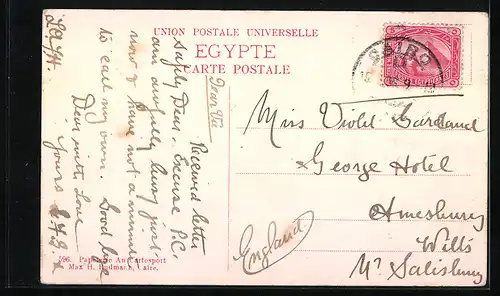 UNION POSTALE UNIVERSELLE
EGYPTE
CARTE POSTALE
CAIRO
Dear Vi
Received letter
safely Dear. Excuse P.C.
am awfully busy just
now & have not a minute
to call my own. Good luck
Dear with Love
Yours
Miss Violet Garland
George Hotel
Amesbury
Wilts
Nr. Salisbury
England
596. Papeterie Au Cartosport
Max H. Rudmann, Caire.